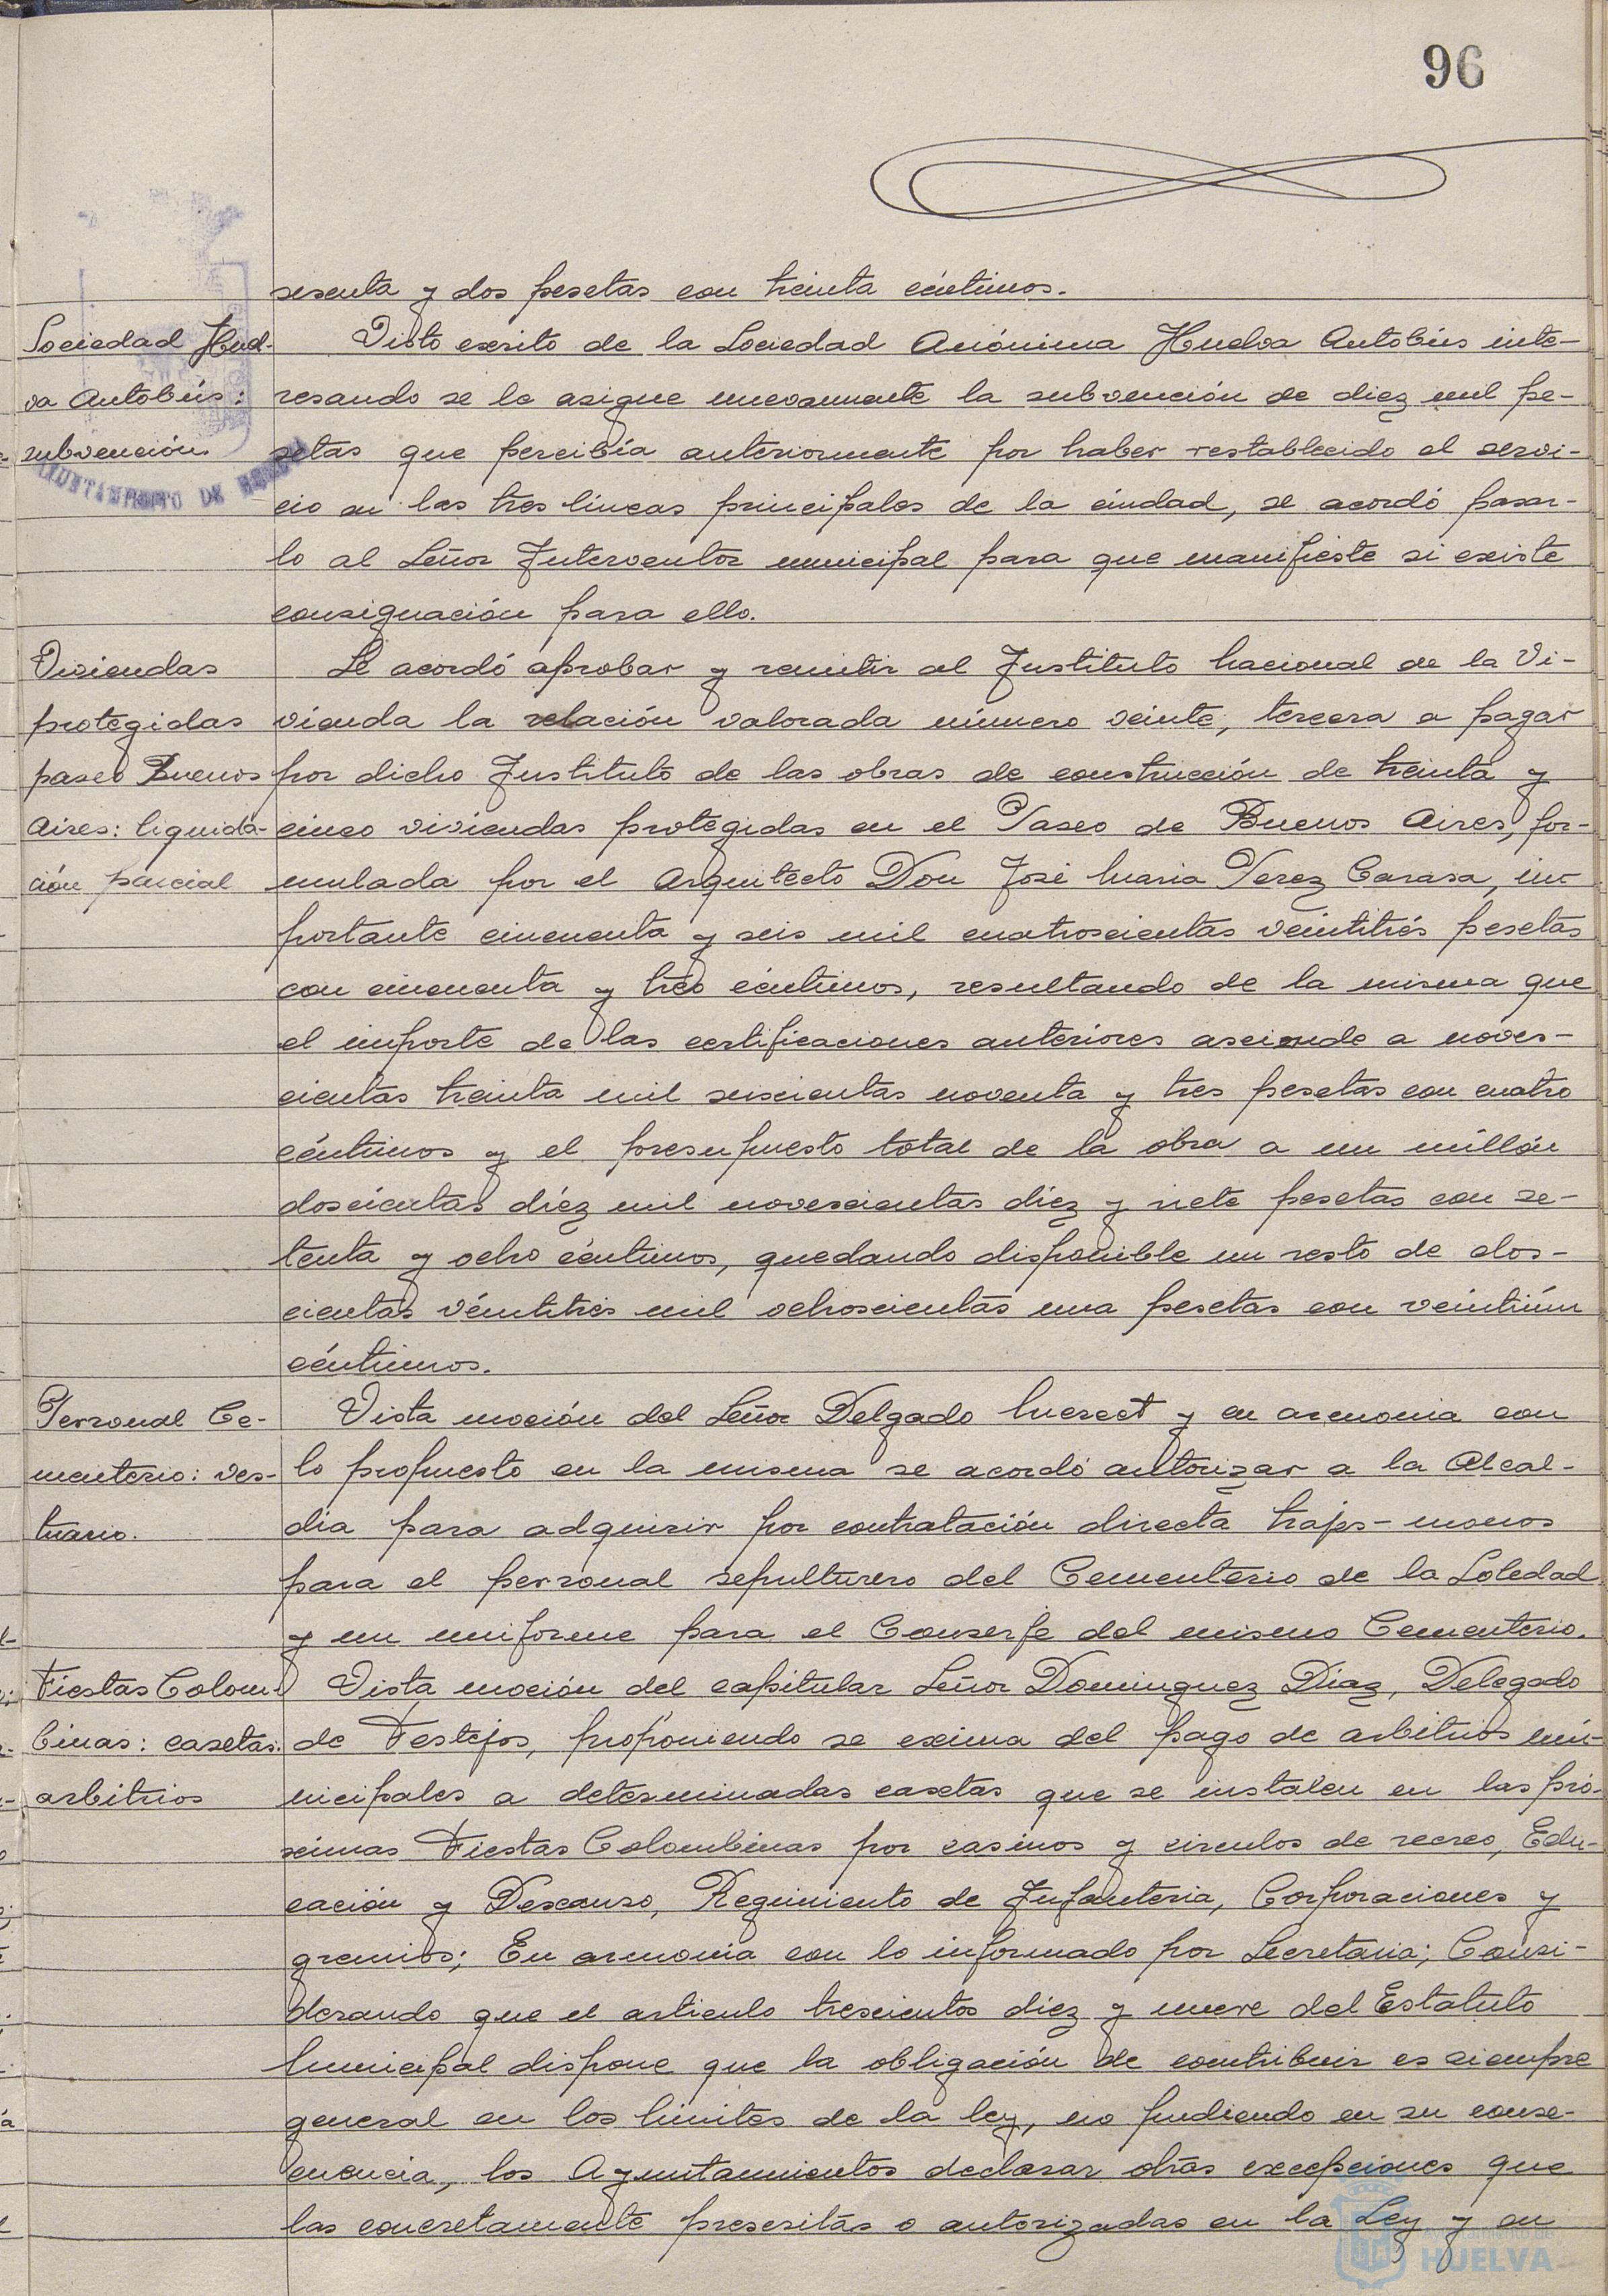 96
sesenta y dos pesetas con treinta céntimos.
Sociedad Huel-
va Autobús:
subvención
Visto escrito de la Sociedad Anónima Huelva Autobús inte-
resando se le asigne nuevamente la subvención de diez mil pe-
setas que percibía anteriormente por haber restablecido el servi-
cio en las tres líneas principales de la ciudad, se acordó pasar-
lo al Señor Interventor municipal para que manifieste si existe
consignación para ello.
AYUNTAMIENTO DE HUELVA
Viviendas
protegidas
paseo Buenos
Aires: liquida-
ción parcial
Se acordó aprobar y remitir al Instituto Nacional de la Vi-
vienda la relación valorada número veinte, tercera a pagar
por dicho Instituto de las obras de construcción de treinta y
cinco viviendas protegidas en el Paseo de Buenos Aires, for-
mulada por el Arquitecto Don José Maria Perez Carasa, im-
portante cincuenta y seis mil cuatroscientas veintitrés pesetas
con cincuenta y tres céntimos, resultando de la misma que
el importe de las certificaciones anteriores asciende a noves-
cientas treinta mil seiscientas noventa y tres pesetas con cuatro
céntimos y el presupuesto total de la obra a un millón
doscientas diez mil novescientas diez y siete pesetas con se-
tenta y ocho céntimos, quedando disponible un resto de dos-
cientas veintitrés mil ochoscientas una pesetas con veintiún
céntimos.
Personal Ce-
menterio: ves-
tuario.
Vista moción del Señor Delgado Merect y en armonia con
lo propuesto en la misma se acordó autorizar a la Alcal-
dia para adquirir por contratación directa trajes-monos
para el personal sepulturero del Cementerio de la Soledad
y un uniforme para el Conserje del mismo Cementerio.
Fiestas Colom-
binas: casetas:
arbitrios
Vista moción del capitular Señor Dominguez Diaz, Delegado
de Festejos, proponiendo se exima del pago de arbitrios mu-
nicipales a determinadas casetas que se instalen en las pró-
ximas Fiestas Colombinas por casinos y circulos de recreo, Edu-
cación y Descanso, Regimiento de Infanteria, Corporaciones y
gremios; En armonia con lo informado por Secretaria; Consi-
derando que el articulo trescientos diez y nueve del Estatuto
Municipal dispone que la obligación de contribuir es siempre
general en los límites de la ley, no pudiendo en su conse-
cuencia, los Ayuntamientos declarar otras excepciones que
las concretamente prescritas o autorizadas en la Ley y en
HUELVA